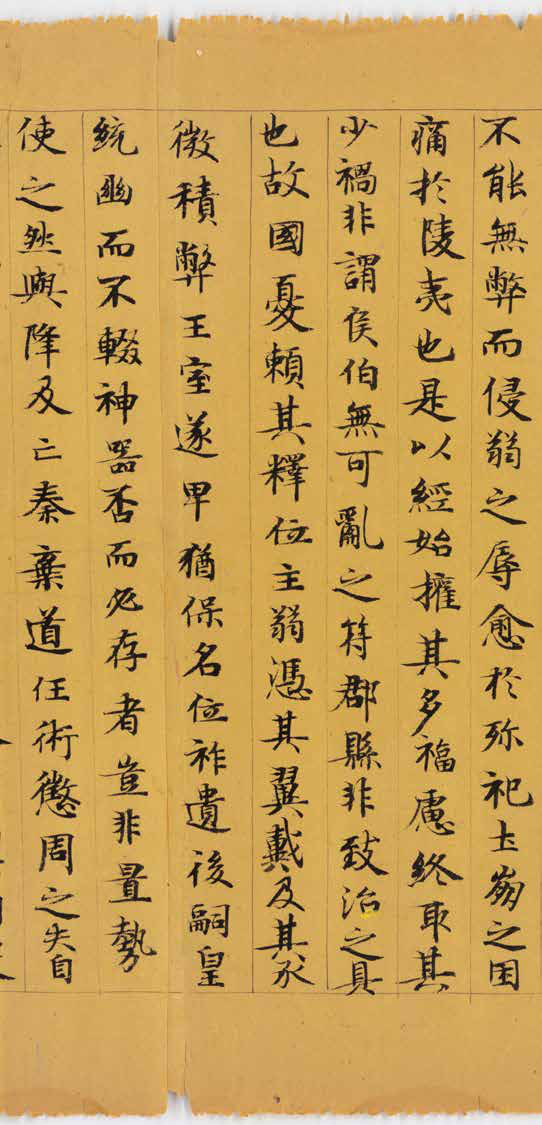 不能無弊而侵弱之辱愈於殄祀土崩之困
痛於陵夷也是以經始權其多福慮終取其
少禍非謂侯伯無可亂之符郡縣非致治之具
也故國憂賴其釋位主弱憑其翼戴及其承
微積弊王室遂卑猶保名位祚遺後嗣皇
統幽而不輟神器否而必存者豈非置勢
使之然與降及亡秦棄道任術懲周之失自